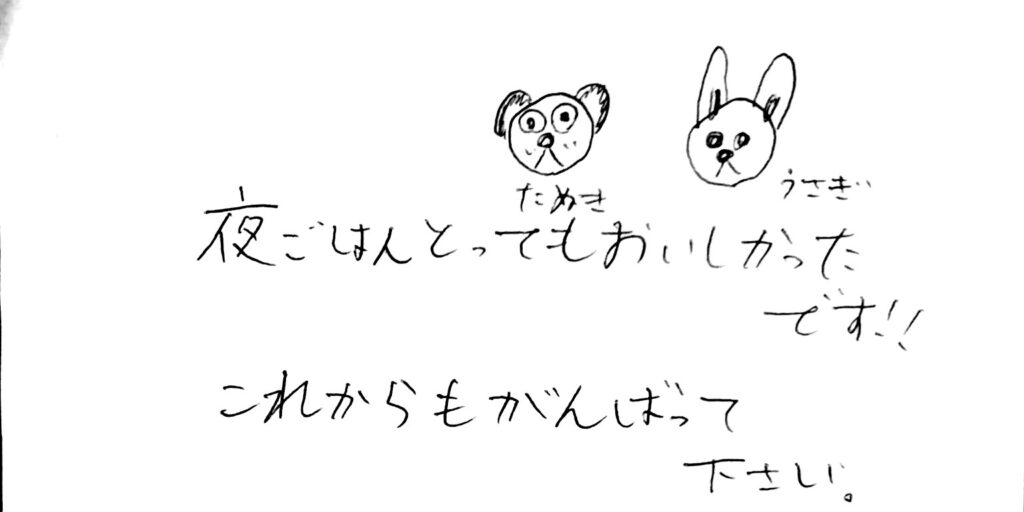 たぬき
うさぎ
夜ごはんとってもおいしかった
です!!
これからもがんばって
下さい。